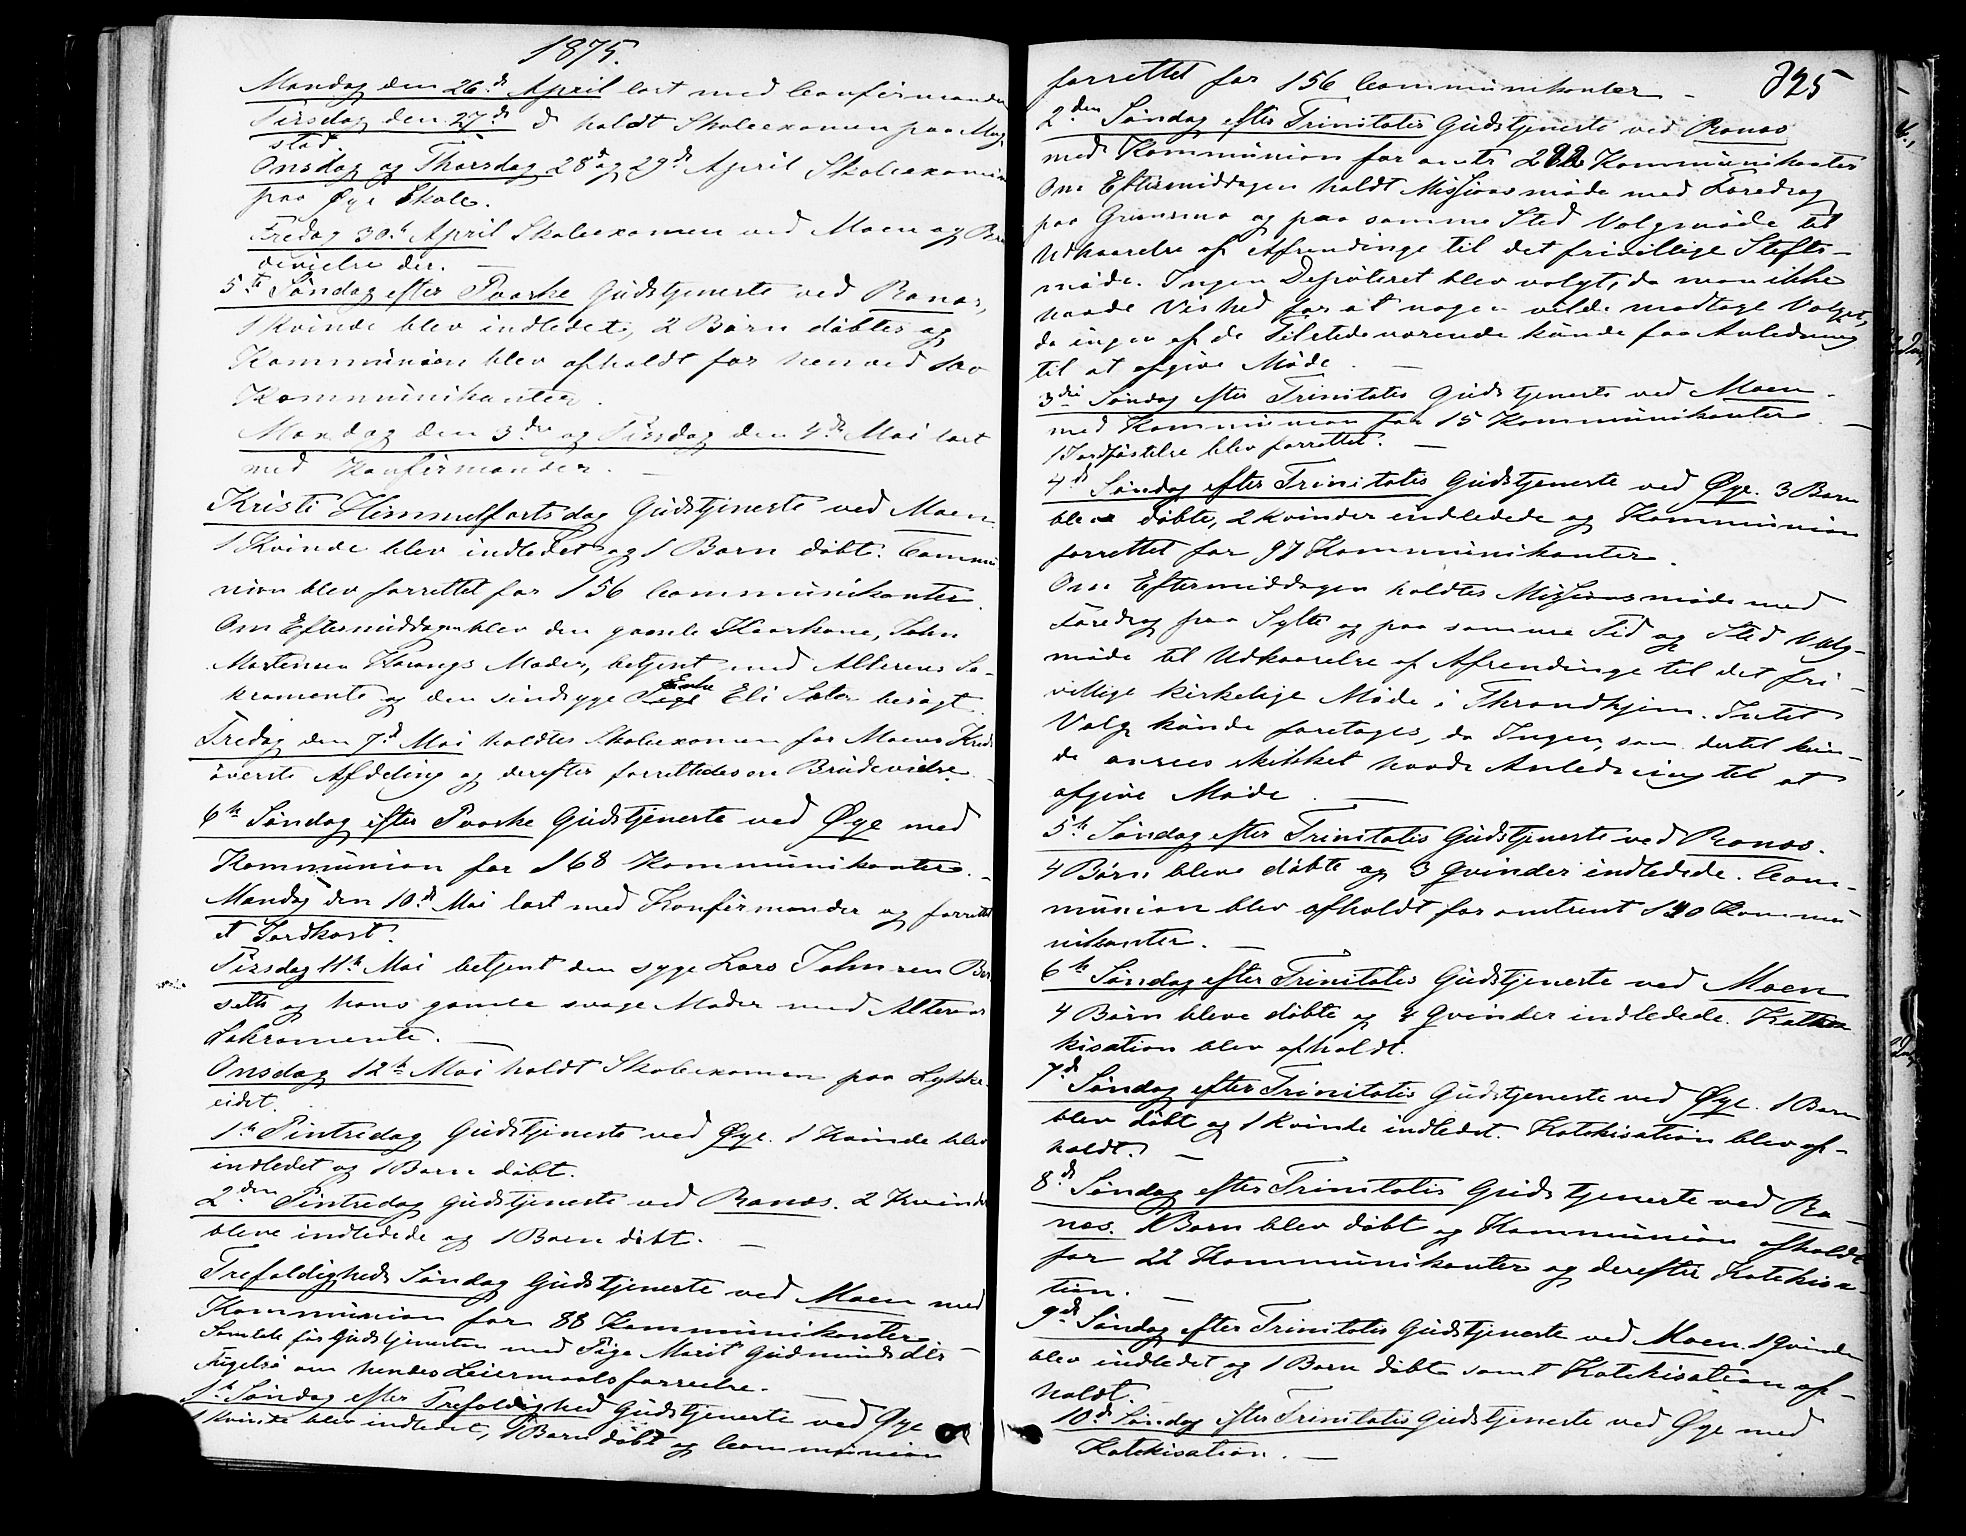 1875.
Mandag den 26de April læst med Confirmander
Tirsdag den 27de holdt Skoleexamen paa Mog-
stad.
Onsdag og Thorsdag 28de og 29de April Skoleexamen
paa Øye Skole.
Fredag 30te April Skoleexamen ved Moen og Bru
devielse der. —
5te Søndag efter Paaske Gudstjeneste ved Ranæs,
1 Kvinde blev indledet, 2 Børn døbtes og
Kommunion blev afholdt for henved
Kommunikanter.
Mandag den 3die og Tirsdag den 4de Mai læst
med Konfirmander. —
Kristi Himmelfartsdag Gudstjeneste ved Moen.
1 Kvinde blev indledet og 1 Barn døbt. Commu
nion blev forrettet for 156 Communikanter.
Om Eftermiddagen blev den gamle Kaarkone, John
Mortensen Harangs Moder, betjent med Alterens Sa-
kramente og den sindsyge Enke Eli Sæter besøgt.
Fredag den 7de Mai holdtes Skoleexamen for Moens Kreds
øverste Afdeling og derefter forrettedes en Brudevielse. —
6te Søndag efter Paaske Gudstjeneste ved Øye med
Kommunion for 168 Kommunikanter. —
Mandag den 10de Mai læst med Konfirmander og forrettet
et Jordkast.
Tirsdag 11te Mai betjent den syge Lars Johnsen Bor
seth og hans gamle svage Moder med Alterens
Sakramente. —
Onsdag 12te Mai holdt Skoleexamen paa Lykke-
eidet.
1ste Pintsedag Gudstjeneste ved Øye. 1 Kvinde blev
indledet og 1 Barn døbt.
2den Pintsedag Gudstjeneste ved Ranæs. 2 Kvinder
bleve indledede og 1 Barn døbt. —
Trefoldigheds Søndag Gudstjeneste ved Moen med
Kommunion for 88 Kommunikanter.
Samlede før Gudstjenesten med Pige Marit Gudmundsdtr
Fugelsø om hendes Leiermaalsforseelse. —
1ste Søndag efter Trefoldighed Gudstjeneste ved Øye
1 Kvinde blev indledet, 1 Barn døbt og Communion
325
forrettet for 156 Communikanter —
2den Søndag efter Trinitatis Gudstjeneste ved Ranæs
med Kommunion for omtr Kommunikanter
Om Eftermiddagen holdt Missionsmøde med Foredrag
paa Grimsmo og paa samme Sted Valgmøde til
Udkaarelse af Afsendinge til det frivillige Stifts-
møde. Ingen Deputeret blev valgt, da man ikke
havde Vished for at nogen vilde modtage Valget,
da ingen af de Tilstedeværende kunde faa Anledning
til at afgive Møde —
3die Søndag efter Trinitatis Gudstjeneste ved Moen
med Kommunion for 15 Kommunikanter. —
1 Jordfæstelse blev forrettet. —
4de Søndag efter Trinitatis Gudstjeneste ved Øye. 3 Børn
bleve døbte, 2 Kvinder indledede og Kommunion
forrettet for 97 Kommunikanter.
Om Eftermiddagen holdtes Missionsmøde med
Foredrag paa Sylte og paa samme Tid og Sted Valg-
møde til Udkaarelse af Afsendinge til det fri-
villige kirkelige Møde i Throndhjem. Intet
Valg kunde foretages, da Ingen, som dertil kun-
de ansees skikket havde Anledning til at
afgive Møde. —
5te Søndag efter Trinitatis Gudstjeneste ved Ranæs.
4 Børn bleve døbte og 3 Qvinder indledede. Com-
munion blev afholdt for omtrent Kommu
nikanter. —
6te Søndag efter Trinitatis Gudstjeneste ved Moen
4 Børn bleve døbte og 4 Qvinder indledede. Kathe
kisation blev afholdt.
7de Søndag efter Trinitatis Gudstjeneste ved Øye. 1 Barn
blev døbt og 1 Kvinde indledet. Katekisation blev af-
holdt. —
8de Søndag efter Trinitatis Gudstjeneste ved Ra-
næs. 1 Barn blev døbt og Kommunion afholdt
for 22 Kommunikanter og derefter Katekisa-
tion. —
9de Søndag efter Trinitatis Gudstjeneste ved Moen. 1 Qvinde
blev indledet og 1 Barn døbt samt Katekisation af-
holdt.
10de Søndag efter Trinitatis Gudstjeneste ved Øye med
Katekisation. —